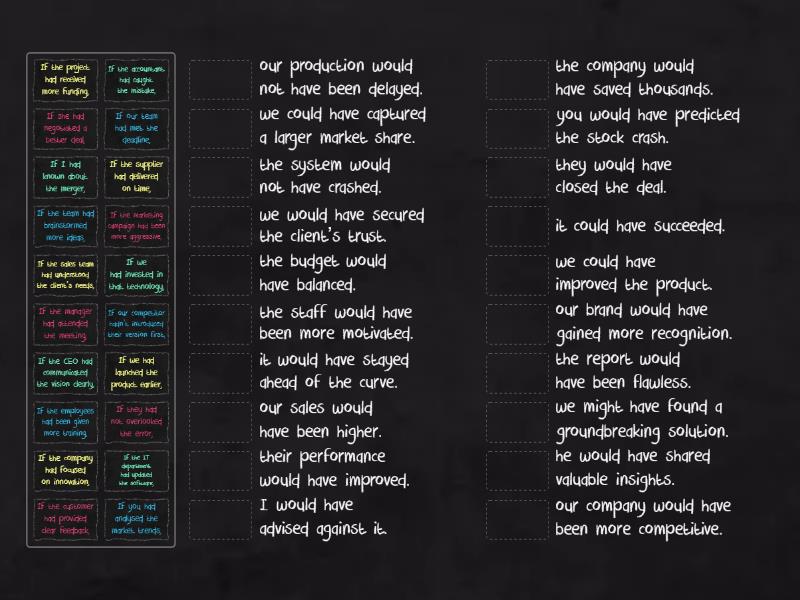 If the project
had received
more funding,
If the accountant
had caught
the mistake,
If she had
negotiated a
better deal,
If our team
had met the
deadline,
If I had
known about
the merger,
If the supplier
had delivered
on time,
If the team had
brainstormed
more ideas,
If the marketing
campaign had been
more aggressive,
If the sales team
had understood
the client's needs,
If we
had invested in
that technology,
If the manager
had attended
the meeting,
If our competitor
hadn't introduced
their version first,
If the CEO had
communicated
the vision clearly,
If we had
launched the
product earlier,
If the employees
had been given
more training,
If they had
not overlooked
the error,
If the company
had focused
on innovation,
If the IT
department
had updated
the software,
If the customer
had provided
clear feedback,
If you had
analysed the
market trends,
our production would
not have been delayed.
we could have captured
a larger market share.
the system would
not have crashed.
we would have secured
the client's trust.
the budget would
have balanced.
the staff would have
been more motivated.
it would have stayed
ahead of the curve.
our sales would
have been higher.
their performance
would have improved.
I would have
advised against it.
the company would
have saved thousands.
you would have predicted
the stock crash.
they would have
closed the deal.
it could have succeeded.
we could have
improved the product.
our brand would have
gained more recognition.
the report would
have been flawless.
we might have found a
groundbreaking solution.
he would have shared
valuable insights.
our company would have
been more competitive.